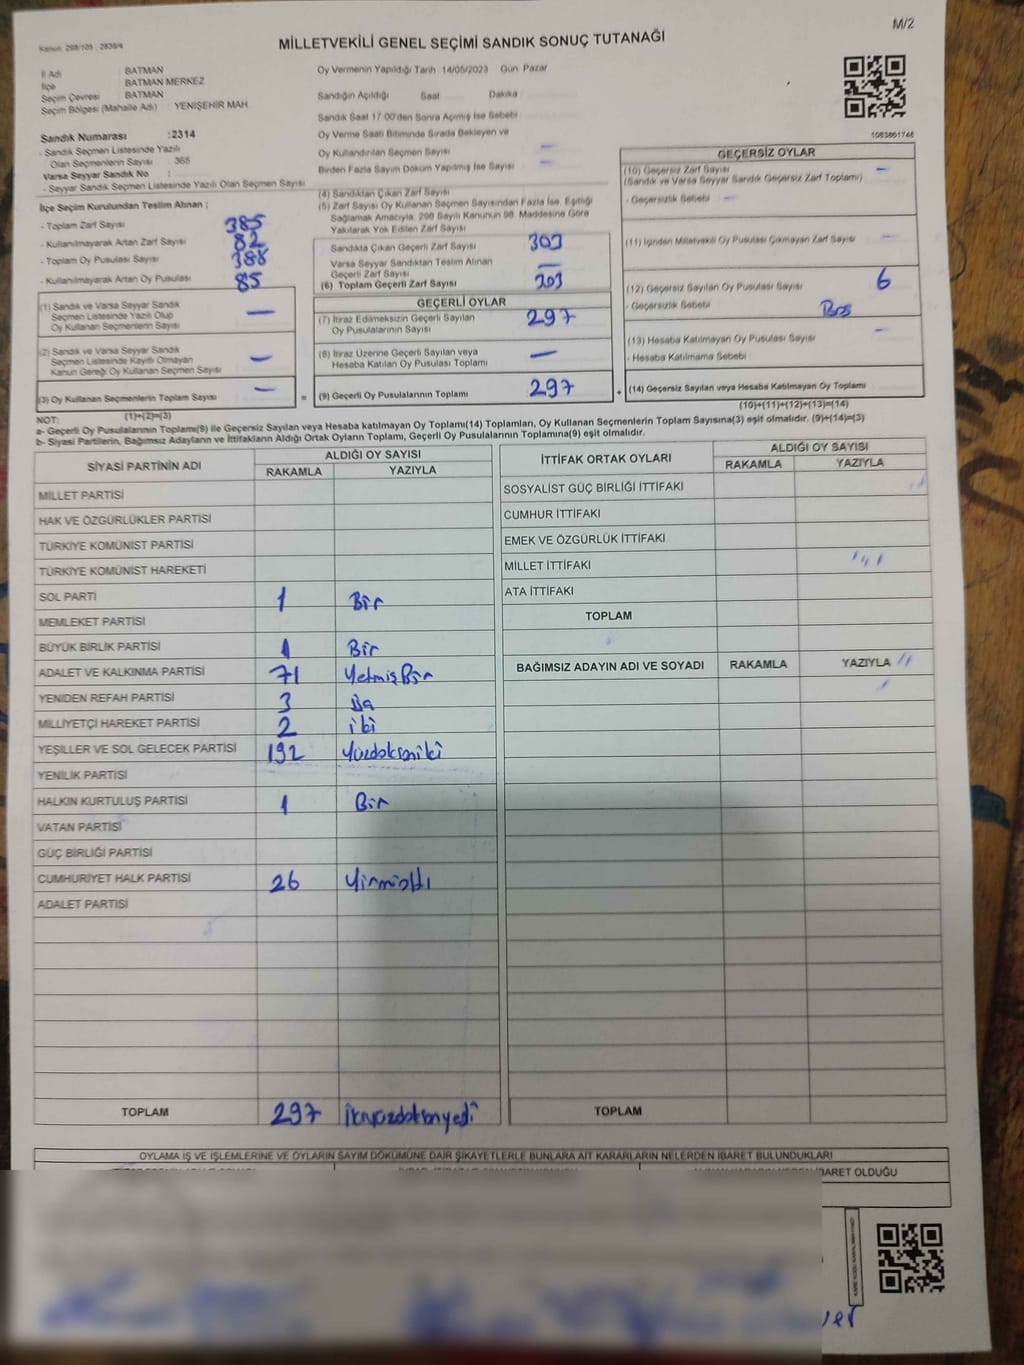 M/2
Kanun: 298/105 , 2839/4
MİLLETVEKİLİ GENEL SEÇİMİ SANDIK SONUÇ TUTANAĞI
İl Adı : BATMAN
İlçe : BATMAN MERKEZ
Seçim Çevresi : BATMAN
Seçim Bölgesi (Mahalle Adı) : YENİŞEHİR MAH.
Sandık Numarası :2314
- Sandık Seçmen Listesinde Yazılı
Olan Seçmenlerin Sayısı : 365
Varsa Seyyar Sandık No :
- Seyyar Sandık Seçmen Listesinde Yazılı Olan Seçmen Sayısı
Oy Vermenin Yapıldığı Tarih :14/05/2023 Gün: Pazar
Sandığın Açıldığı Saat Dakika
Sandık Saat 17:00'den Sonra Açılmış İse Sebebi
Oy Verme Saati Bitiminde Sırada Bekleyen ve
Oy Kullandırılan Seçmen Sayısı —
Birden Fazla Sayım Döküm Yapılmış İse Sayısı —
1083861746
İlçe Seçim Kurulundan Teslim Alınan ;
- Toplam Zarf Sayısı 385
- Kullanılmayarak Artan Zarf Sayısı 82
- Toplam Oy Pusulası Sayısı 388
- Kullanılmayarak Artan Oy Pusulası 85
(1) Sandık ve Varsa Seyyar Sandık
Seçmen Listesinde Yazılı Olup
Oy Kullanan Seçmenlerin Sayısı —
(2) Sandık ve Varsa Seyyar Sandık
Seçmen Listesinde Kayıtlı Olmayan
Kanun Gereği Oy Kullanan Seçmen Sayısı —
(3) Oy Kullanan Seçmenlerin Toplam Sayısı —
(1)+(2)=(3)
(4) Sandıktan Çıkan Zarf Sayısı
(5) Zarf Sayısı Oy Kullanan Seçmen Sayısından Fazla İse, Eşitliği
Sağlamak Amacıyla, 298 Sayılı Kanunun 98. Maddesine Göre
Yakılarak Yok Edilen Zarf Sayısı
Sandıkta Çıkan Geçerli Zarf Sayısı 303
Varsa Seyyar Sandıktan Teslim Alınan
Geçerli Zarf Sayısı —
(6) Toplam Geçerli Zarf Sayısı 303
GEÇERLİ OYLAR
(7) İtiraz Edilmeksizin Geçerli Sayılan
Oy Pusulalarının Sayısı 297
(8) İtiraz Üzerine Geçerli Sayılan veya
Hesaba Katılan Oy Pusulası Toplamı —
= (9) Geçerli Oy Pusulalarının Toplamı 297 +
GEÇERSİZ OYLAR
(10) Geçersiz Zarf Sayısı —
(Sandık ve Varsa Seyyar Sandık Geçersiz Zarf Toplamı)
- Geçersizlik Sebebi —
(11) İçinden Milletvekili Oy Pusulası Çıkmayan Zarf Sayısı —
(12) Geçersiz Sayılan Oy Pusulası Sayısı 6
- Geçersizlik Sebebi
(13) Hesaba Katılmayan Oy Pusulası Sayısı —
- Hesaba Katılmama Sebebi
(14) Geçersiz Sayılan veya Hesaba Katılmayan Oy Toplamı
(10)+(11)+(12)+(13)=(14)
NOT:
a- Geçerli Oy Pusulalarının Toplamı(9) ile Geçersiz Sayılan veya Hesaba Katılmayan Oy Toplamı(14) Toplamları, Oy Kullanan Seçmenlerin Toplam Sayısına(3) eşit olmalıdır. (9)+(14)=(3)
b- Siyasi Partilerin, Bağımsız Adayların ve İttifakların Aldığı Ortak Oyların Toplamı, Geçerli Oy Pusulalarının Toplamına(9) eşit olmalıdır.
SİYASİ PARTİNİN ADI ALDIĞI OY SAYISI
RAKAMLA YAZIYLA
MİLLET PARTİSİ
HAK VE ÖZGÜRLÜKLER PARTİSİ
TÜRKİYE KOMÜNİST PARTİSİ
TÜRKİYE KOMÜNİST HAREKETİ
SOL PARTİ 1 Bir
MEMLEKET PARTİSİ
BÜYÜK BİRLİK PARTİSİ 1 Bir
ADALET VE KALKINMA PARTİSİ 71 YetmişBir
YENİDEN REFAH PARTİSİ 3
MİLLİYETÇİ HAREKET PARTİSİ 2 iki
YEŞİLLER VE SOL GELECEK PARTİSİ 192
YENİLİK PARTİSİ
HALKIN KURTULUŞ PARTİSİ 1 Bir
VATAN PARTİSİ
GÜÇ BİRLİĞİ PARTİSİ
CUMHURİYET HALK PARTİSİ 26 Yirmialtı
ADALET PARTİSİ
TOPLAM 297
İTTİFAK ORTAK OYLARI ALDIĞI OY SAYISI
RAKAMLA YAZIYLA
SOSYALİST GÜÇ BİRLİĞİ İTTİFAKI
CUMHUR İTTİFAKI
EMEK VE ÖZGÜRLÜK İTTİFAKI
MİLLET İTTİFAKI
ATA İTTİFAKI
TOPLAM
BAĞIMSIZ ADAYIN ADI VE SOYADI RAKAMLA YAZIYLA
TOPLAM
OYLAMA İŞ VE İŞLEMLERİNE VE OYLARIN SAYIM DÖKÜMÜNE DAİR ŞİKAYETLERLE BUNLARA AİT KARARLARIN NELERDEN İBARET BULUNDUKLARI
İBARET OLDUĞU